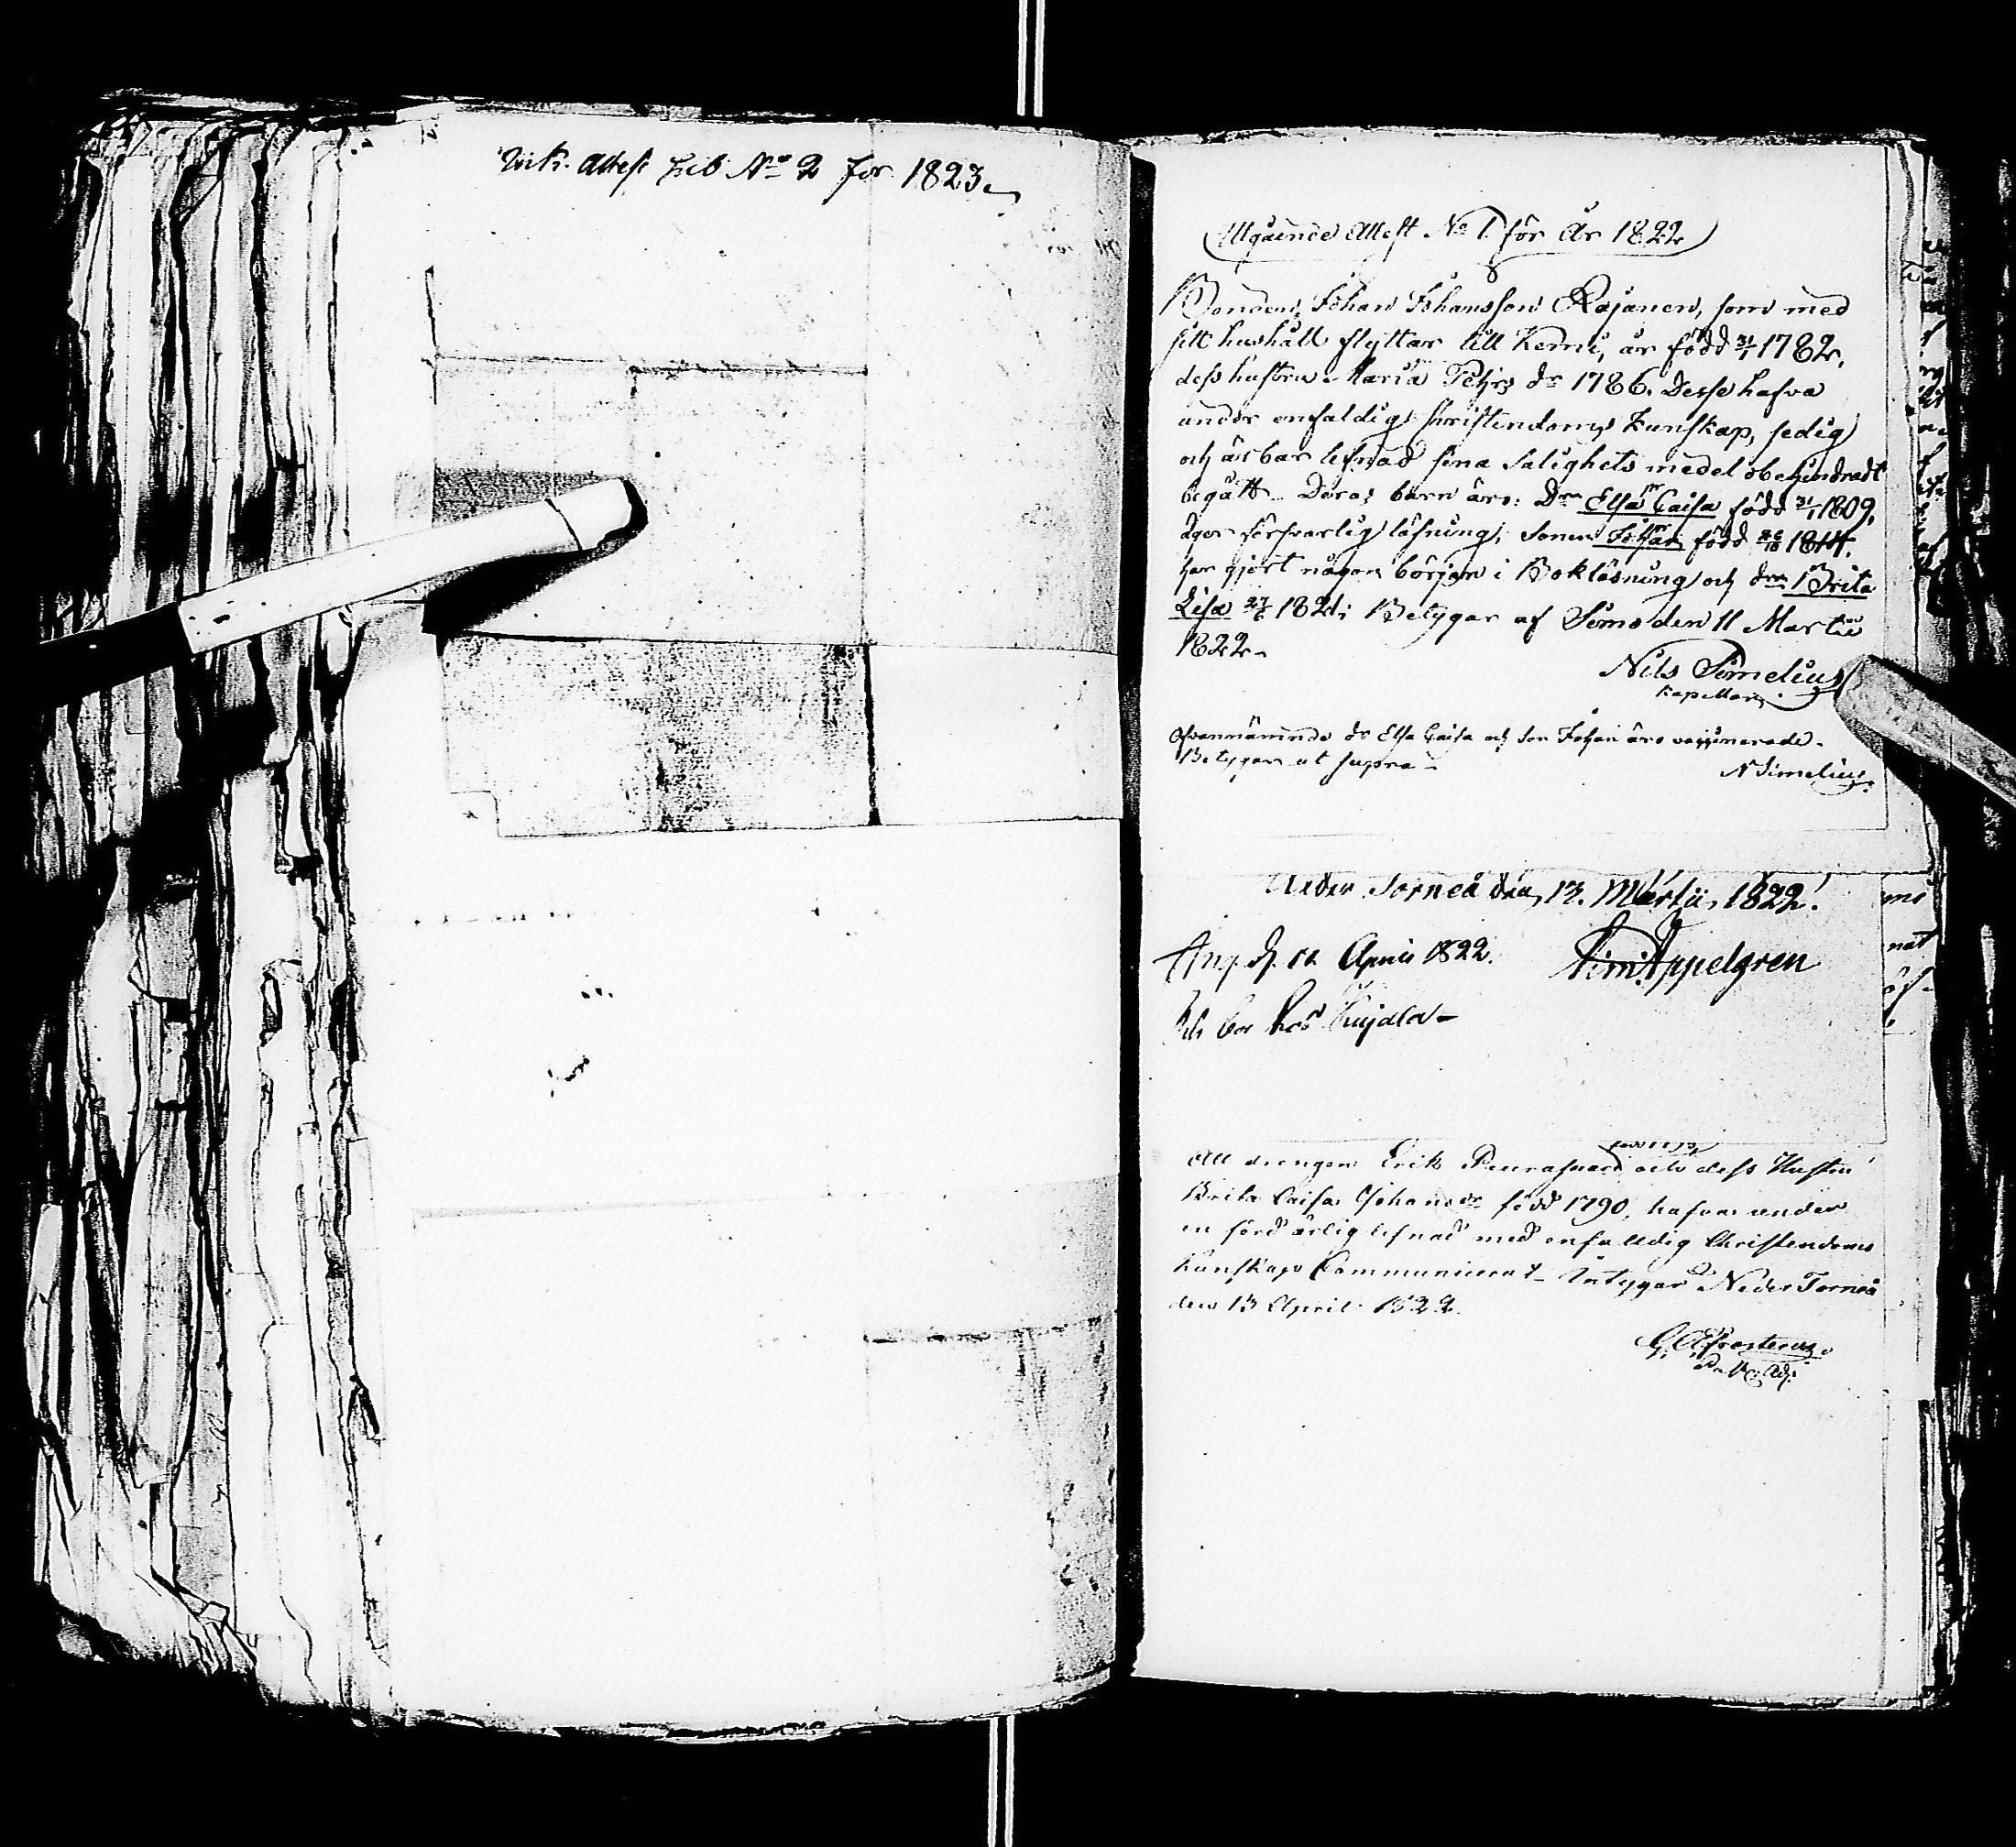 Attest Lit No 2 for 1823
Utgående Attest No 1 för År 1822
Bonden, Johan Johansson Rajanen, som med
sitt hushåll flyttar till Kemi, är född 31/1 1782,
dess hustru Maria Pehrs dr 1786. Desse hafva
under enfaldig Christendoms Kunskap, sedig
och ärbar lefnad sina Salighets medel obehindradt
begått. Deras barn äro: Drn Elsa Caisa född 31/1 1809,
äger försvarlig läsning, Sonen Johan född 1814,
har gjort någon början i Bokläsning och drn Brita
Lisa 27/6 1821; Betygar af Simo den 11 Martii
1822.
Nils Simelius
Kapellan
Ofvannämnde dr Elsa Caisa och son Johan äro vaccinerade.
Betygar ut supra
N Simelius
Neder Torneå den 13. Martii 1822.
d. 12 April 1822. Appelgren
bor hos Kujala
Att drengen Erik och dess Hustru
Brita Caisa Johans dr född 1790, hafva under
en förd ärlig lefnad med enfaldig Christendoms
Kunskap Communicerat. Intygar Neder Torneå
den 13 April 1822.
Adj.